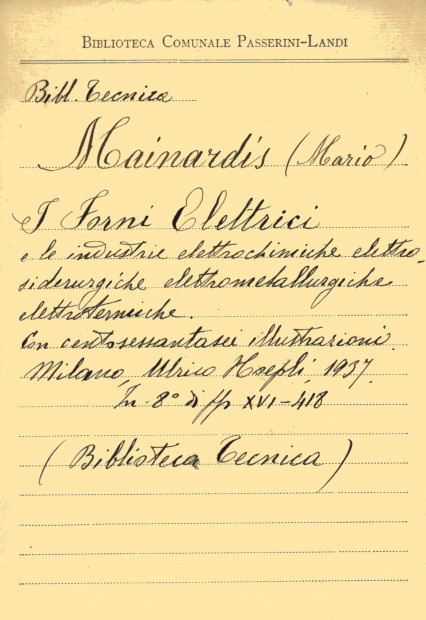 BIBLIOTECA COMUNALE PASSERINI-LANDI
Bibl. Tecnica
Mainardis (Mario)
I Forni Elettrici
e le industrie elettrochimiche elettro-
siderurgiche elettrometallurgiche
elettrotermiche.
Con centosessantasei illustrazioni.
Milano, Ulrico Hoepli, 1937.
In 8° di pp XVI-418
(Biblioteca Tecnica)